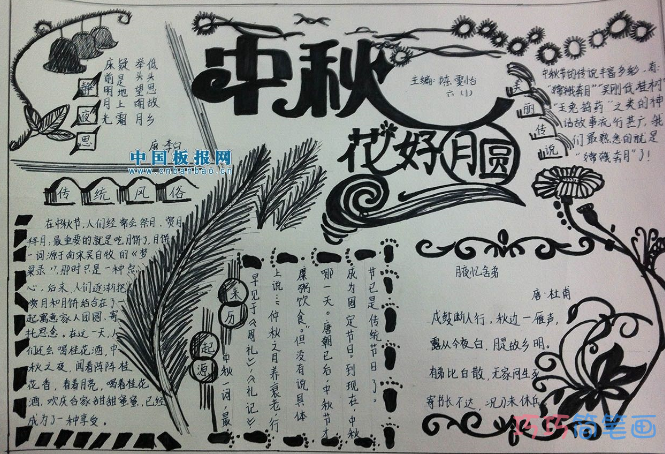 中秋
花好月圆
主编:陈雪怡
静夜思
床前明月光
疑是地上霜
举头望明月
低头思故乡
唐 李白
中国板报网
www.cnbanbao.cn
传统风俗
在中秋节,人们经常会祭月,赏月
拜月,最重要的就是吃月饼了,月饼
一词源于南宋吴自牧的《梦
心。后来,人们逐渐把
赏月和月饼结合在了一
起寓意家人团圆,寄
托思念。在这一天,人
们还会喝桂花酒,中
秋之夜,闻着阵阵桂
花香,看着月亮,喝着桂花
酒,欢庆合家甜甜蜜蜜,已经
成为了一种享受。
来历
起源
中秋一词,最
早见于《周礼》《礼记》
上说:“仲秋之月养衰老,行
糜粥饮食。”但没有说具体
哪一天。唐朝已后,中秋节才
成为固定节日,到现在,中秋
节已是传统节日了。
美丽传说
中秋节的传说丰富多彩,有:
“嫦娥奔月”“吴刚伐桂树”
“玉兔捣药”之类的神
话故事流行甚广,我
们最熟悉的就是
“嫦娥奔月”了!
月夜忆舍弟
唐·杜甫
戍鼓断人行,秋边一雁声。
露从今夜白,月是故乡明。
有弟皆分散,无家问生死
寄书长不达,况乃未休兵
巧巧简笔画